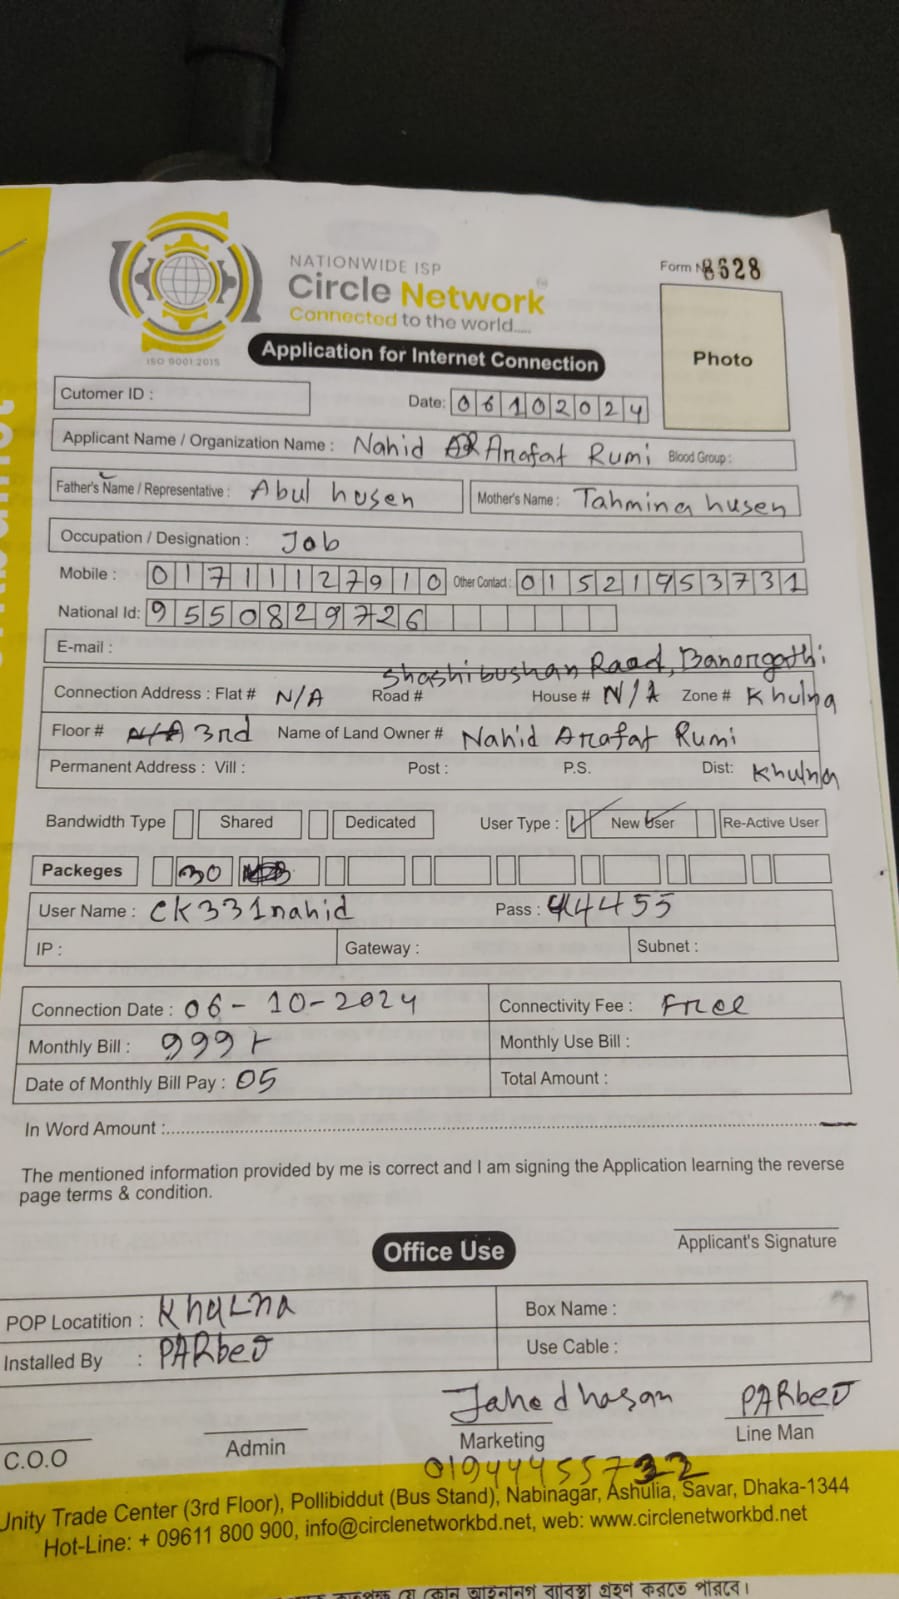 NATIONWIDE ISP
Circle Network
Connected to the world.....
ISO 9001:2015
Form N 8628
Application for Internet Connection
Photo
Cutomer ID :
Date: 06102024
Applicant Name / Organization Name : Nahid Arafat Rumi Blood Group :
Father's Name / Representative : Abul husen Mother's Name : Tahmina husen
Occupation / Designation : Job
Mobile : 01711127910 Other Contact : 01521
National Id: 9550829726
E-mail :
Shashibushan Raod, Banorgathi
Connection Address : Flat # N/A Road # House # N/A Zone # Khulna
Floor # 3rd Name of Land Owner # Nahid Arafat Rumi
Permanent Address : Vill : Post : P.S. Dist: Khulna
Bandwidth Type Shared Dedicated User Type : New User Re-Active User
Packeges 30
User Name : CK331nahid Pass : 44455
IP : Gateway : Subnet :
Connection Date : 06-10-2024 Connectivity Fee : Free
Monthly Bill : 999 Monthly Use Bill :
Date of Monthly Bill Pay : 05 Total Amount :
In Word Amount :
The mentioned information provided by me is correct and I am signing the Application learning the reverse
page terms & condition.
Applicant's Signature
Office Use
POP Locatition : Khulna Box Name :
Installed By : PARbeJ Use Cable :
Jahedhasan PARbeJ
C.O.O Admin Marketing Line Man
01944455732
Unity Trade Center (3rd Floor), Pollibiddut (Bus Stand), Nabinagar, Ashulia, Savar, Dhaka-1344
Hot-Line: + 09611 800 900, info@circlenetworkbd.net, web: www.circlenetworkbd.net
যে কোন আইনানগ ব্যবিস্থা গ্রহণ করতে পারবে।